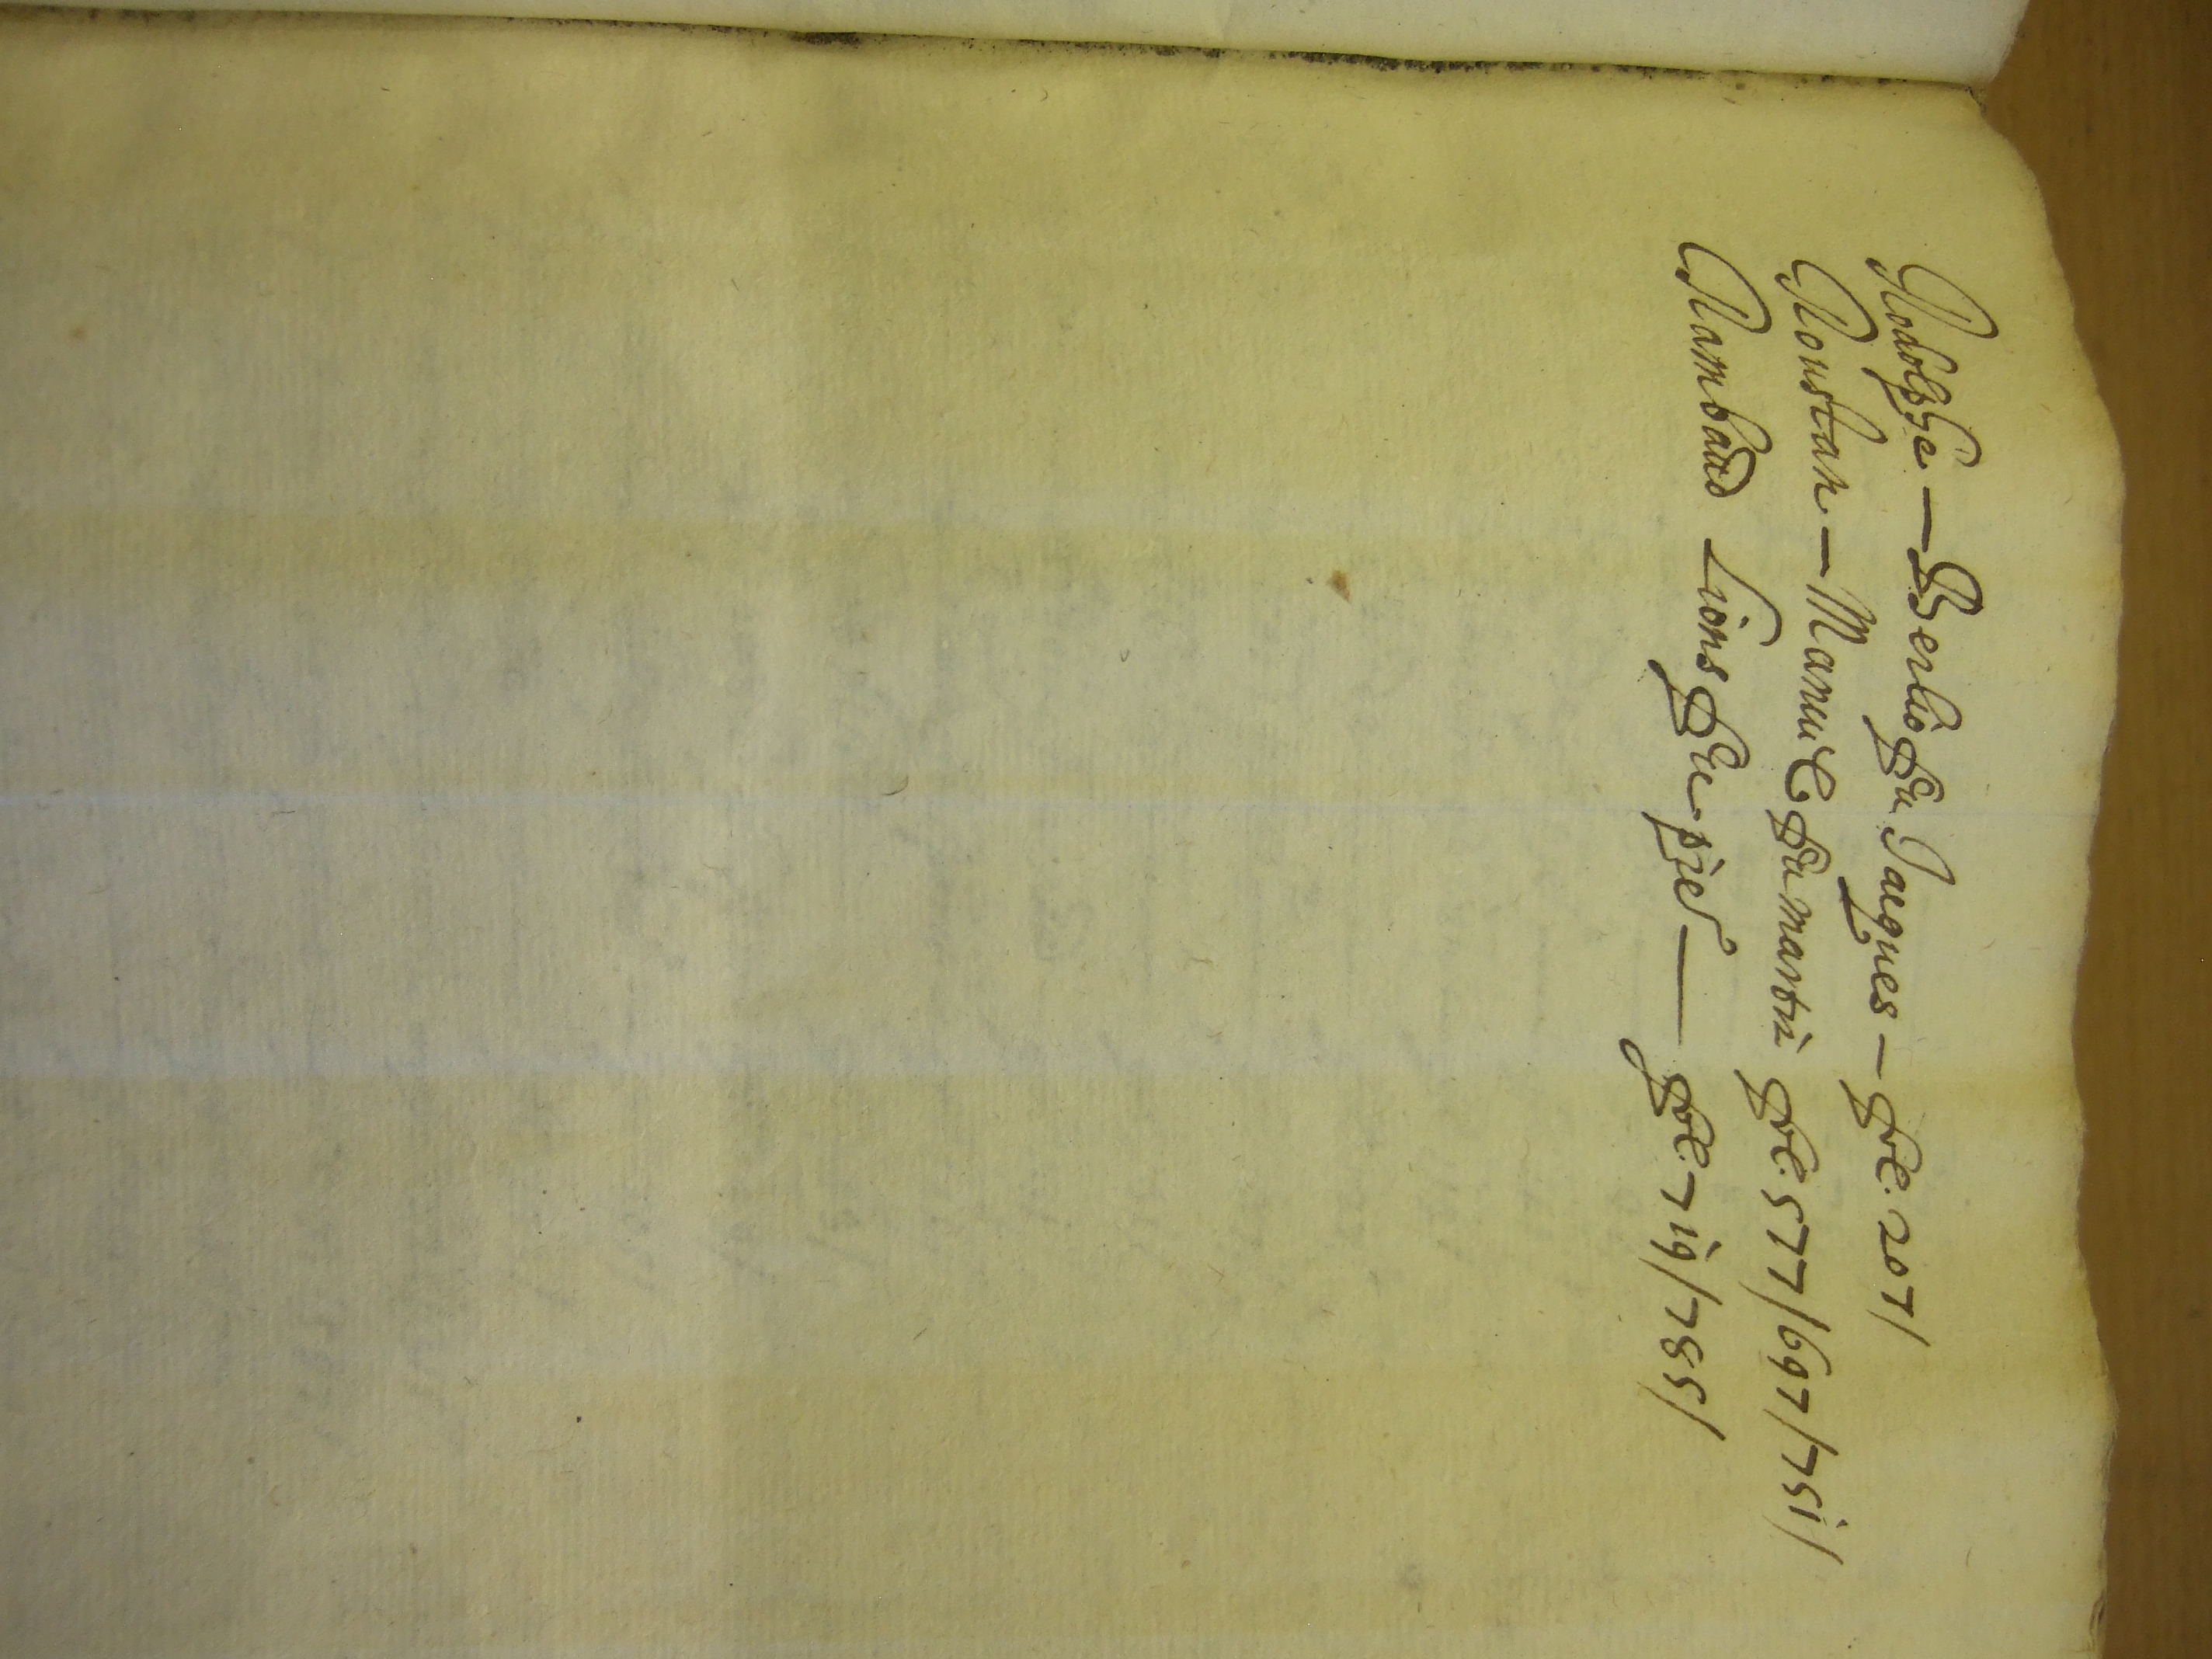 Rodolphe — Berlio feu Jaques — fol. 207/
Roustan — Manuel feu martin fol. 577/697/751/
Rambaud Lions feu pie — fol. 719/755/